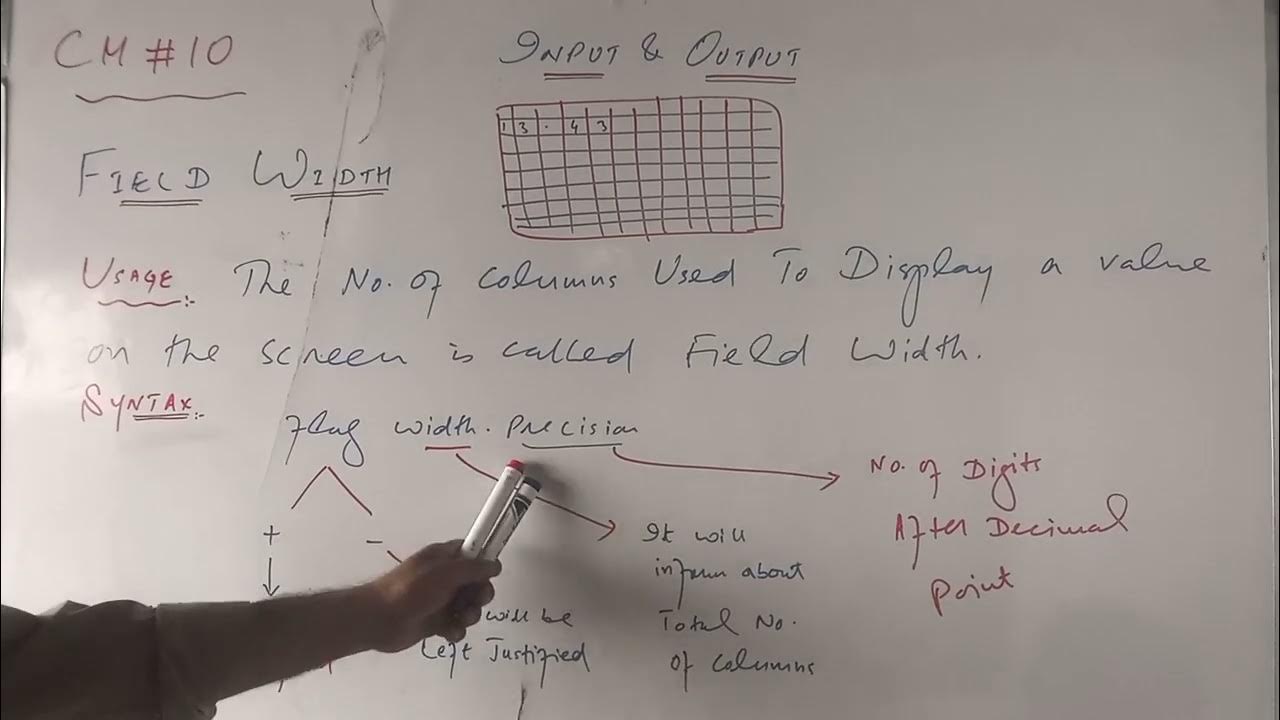 CH #10
INPUT & OUTPUT
13.43
FIELD WIDTH
USAGE:- The No. of columns Used To Display a value
on the screen is called Field Width.
SYNTAX:-
flag width. Precision
+ -
No. of Digits
After Decimal
Point
It will
inform about
Total No.
of columns
will be
Left Justified